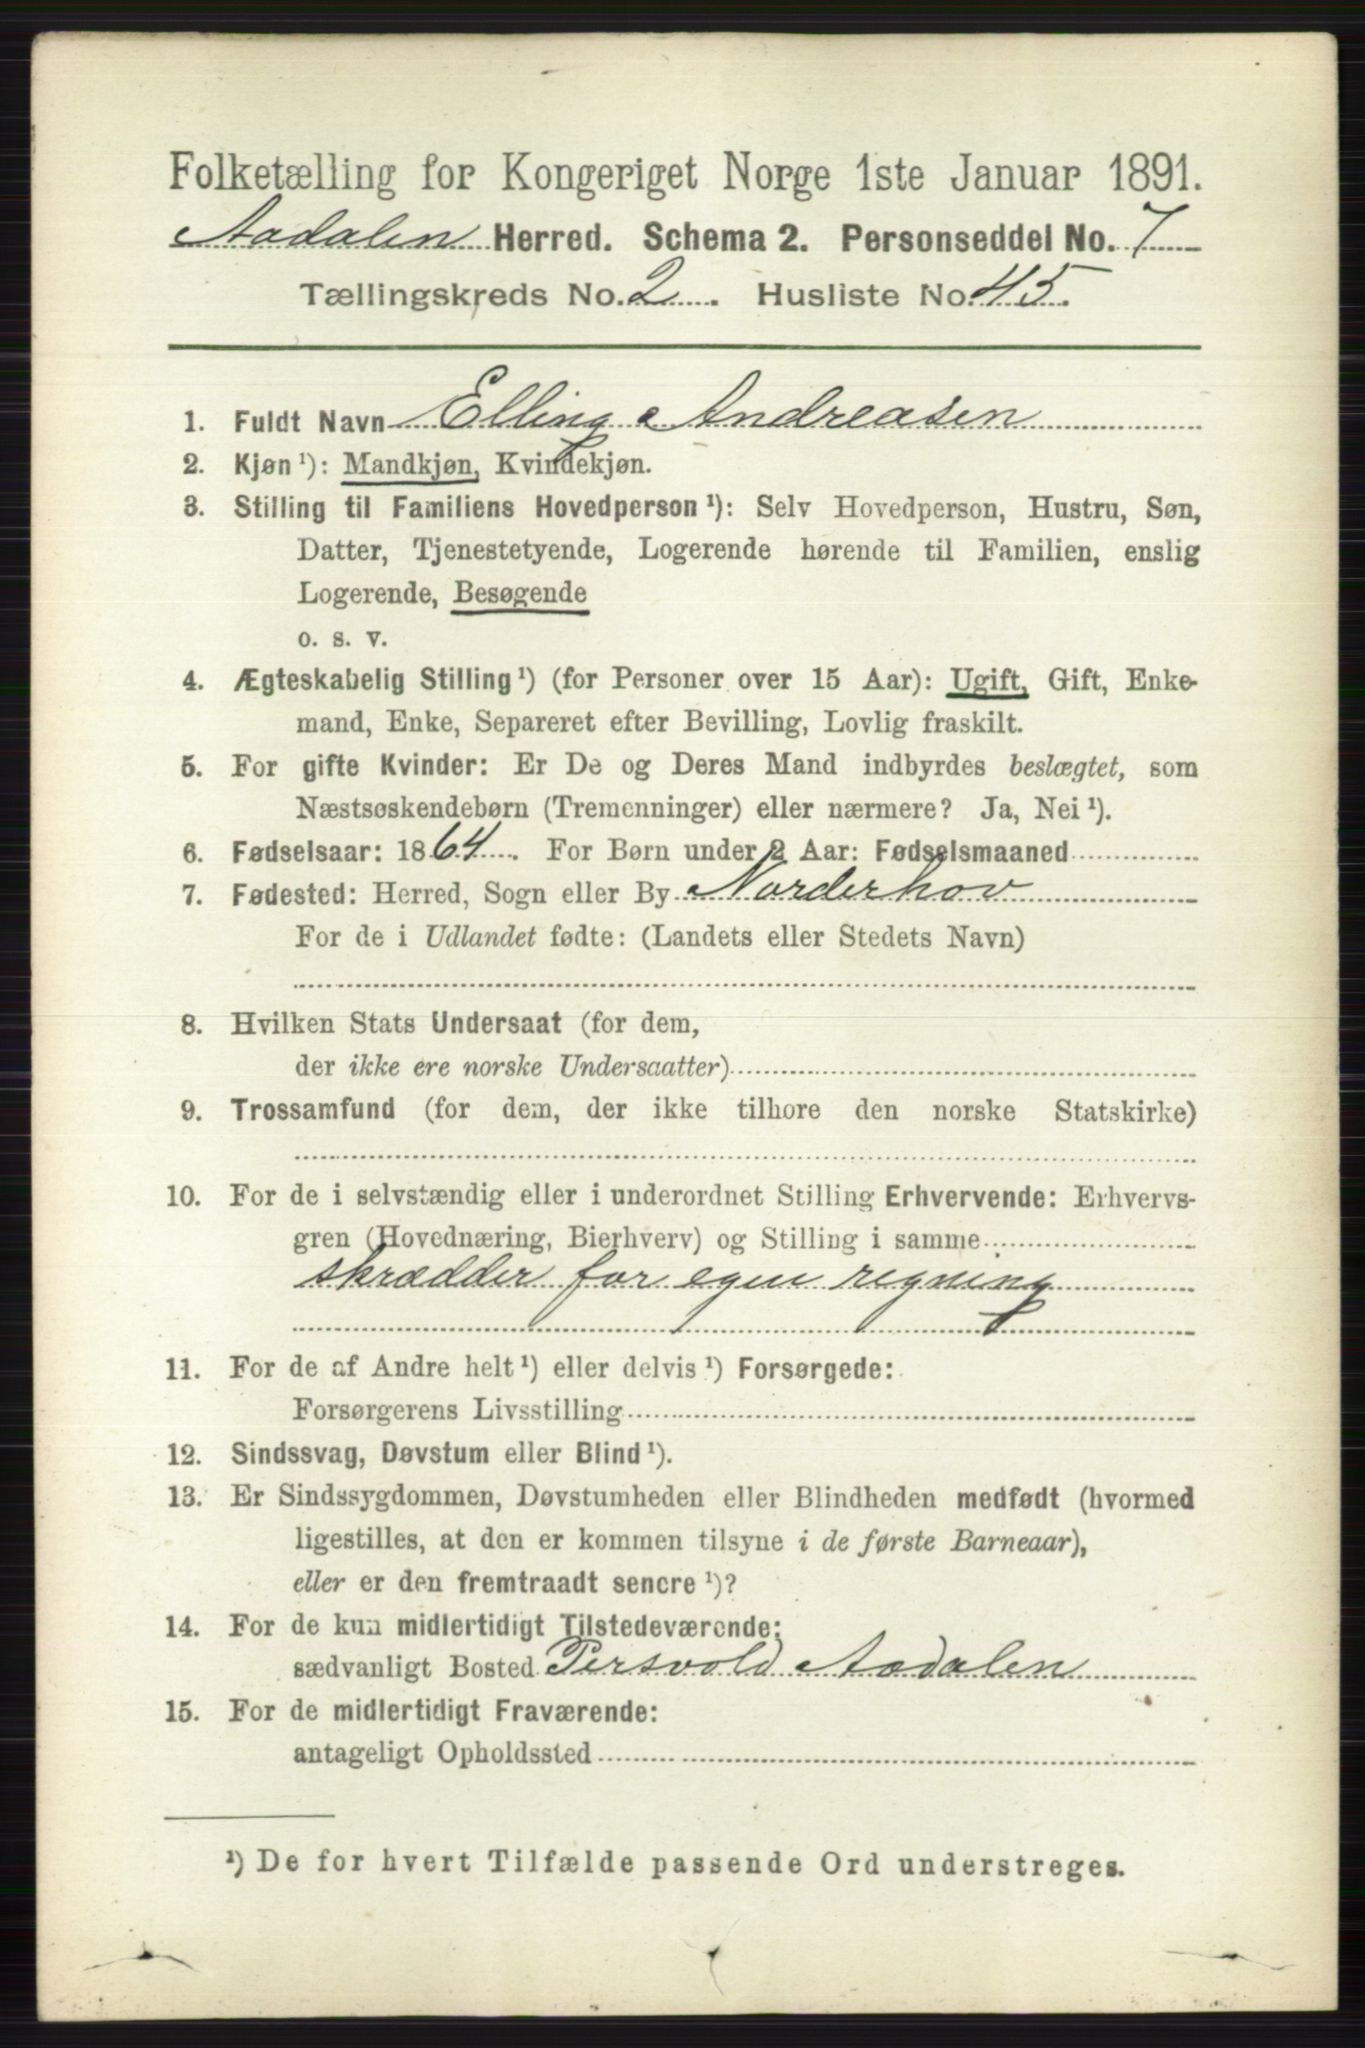 Folketælling for Kongeriget Norge 1ste Januar 1891.
Aadalen Herred. Schema 2. Personseddel No. 7
Tællingskreds No. 2. Husliste No. 45.
1. Fuldt Navn Elling Andreasen
2. Kjøn ¹): Mandkjøn, Kvindekjøn.
3. Stilling til Familiens Hovedperson ¹): Selv Hovedperson, Hustru, Søn,
Datter, Tjenestetyende, Logerende hørende til Familien, enslig
Logerende, Besøgende
o. s. v.
4. Ægteskabelig Stilling ¹) (for Personer over 15 Aar): Ugift, Gift, Enke-
mand, Enke, Separeret efter Bevilling, Lovlig fraskilt.
5. For gifte Kvinder: Er De og Deres Mand indbyrdes beslægtet, som
Næstsøskendebørn (Tremenninger) eller nærmere? Ja, Nei ¹).
6. Fødselsaar: 1864. For Børn under 2 Aar: Fødselsmaaned
7. Fødested: Herred, Sogn eller By Norderhov
For de i Udlandet fødte: (Landets eller Stedets Navn)
8. Hvilken Stats Undersaat (for dem,
der ikke ere norske Undersaatter)
9. Trossamfund (for dem, der ikke tilhore den norske Statskirke)
10. For de i selvstændig eller i underordnet Stilling Erhvervende: Erhvervs-
gren (Hovednæring, Bierhverv) og Stilling i samme
skrædder for egen regning
11. For de af Andre helt ¹) eller delvis ¹) Forsørgede:
Forsørgerens Livsstilling
12. Sindssvag, Døvstum eller Blind ¹).
13. Er Sindssygdommen, Døvstumheden eller Blindheden medfødt (hvormed
ligestilles, at den er kommen tilsyne i de første Barneaar),
eller er den fremtraadt senere ¹)?
14. For de kun midlertidigt Tilstedeværende:
sædvanligt Bosted Persvold Aadalen
15. For de midlertidigt Fraværende:
antageligt Opholdssted
¹) De for hvert Tilfælde passende Ord understreges.